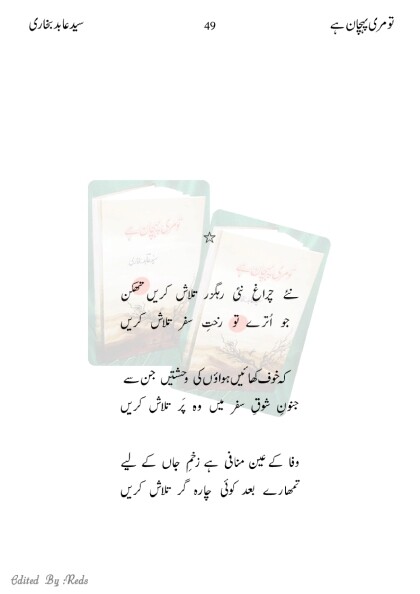 تو مری پہچان ہے 49 سید عابد بخاری
☆
نئے چراغ نئی رہگزر تلاش کریں تھکن
جو اُترے تو رختِ سفر تلاش کریں
کہ خوف کھائیں ہواؤں کی وحشتیں جن سے
جنونِ شوقِ سفر میں وہ پَر تلاش کریں
وفا کے عین منافی ہے زخمِ جاں کے لیے
تمھارے بعد کوئی چارہ گر تلاش کریں
Edited By Reds